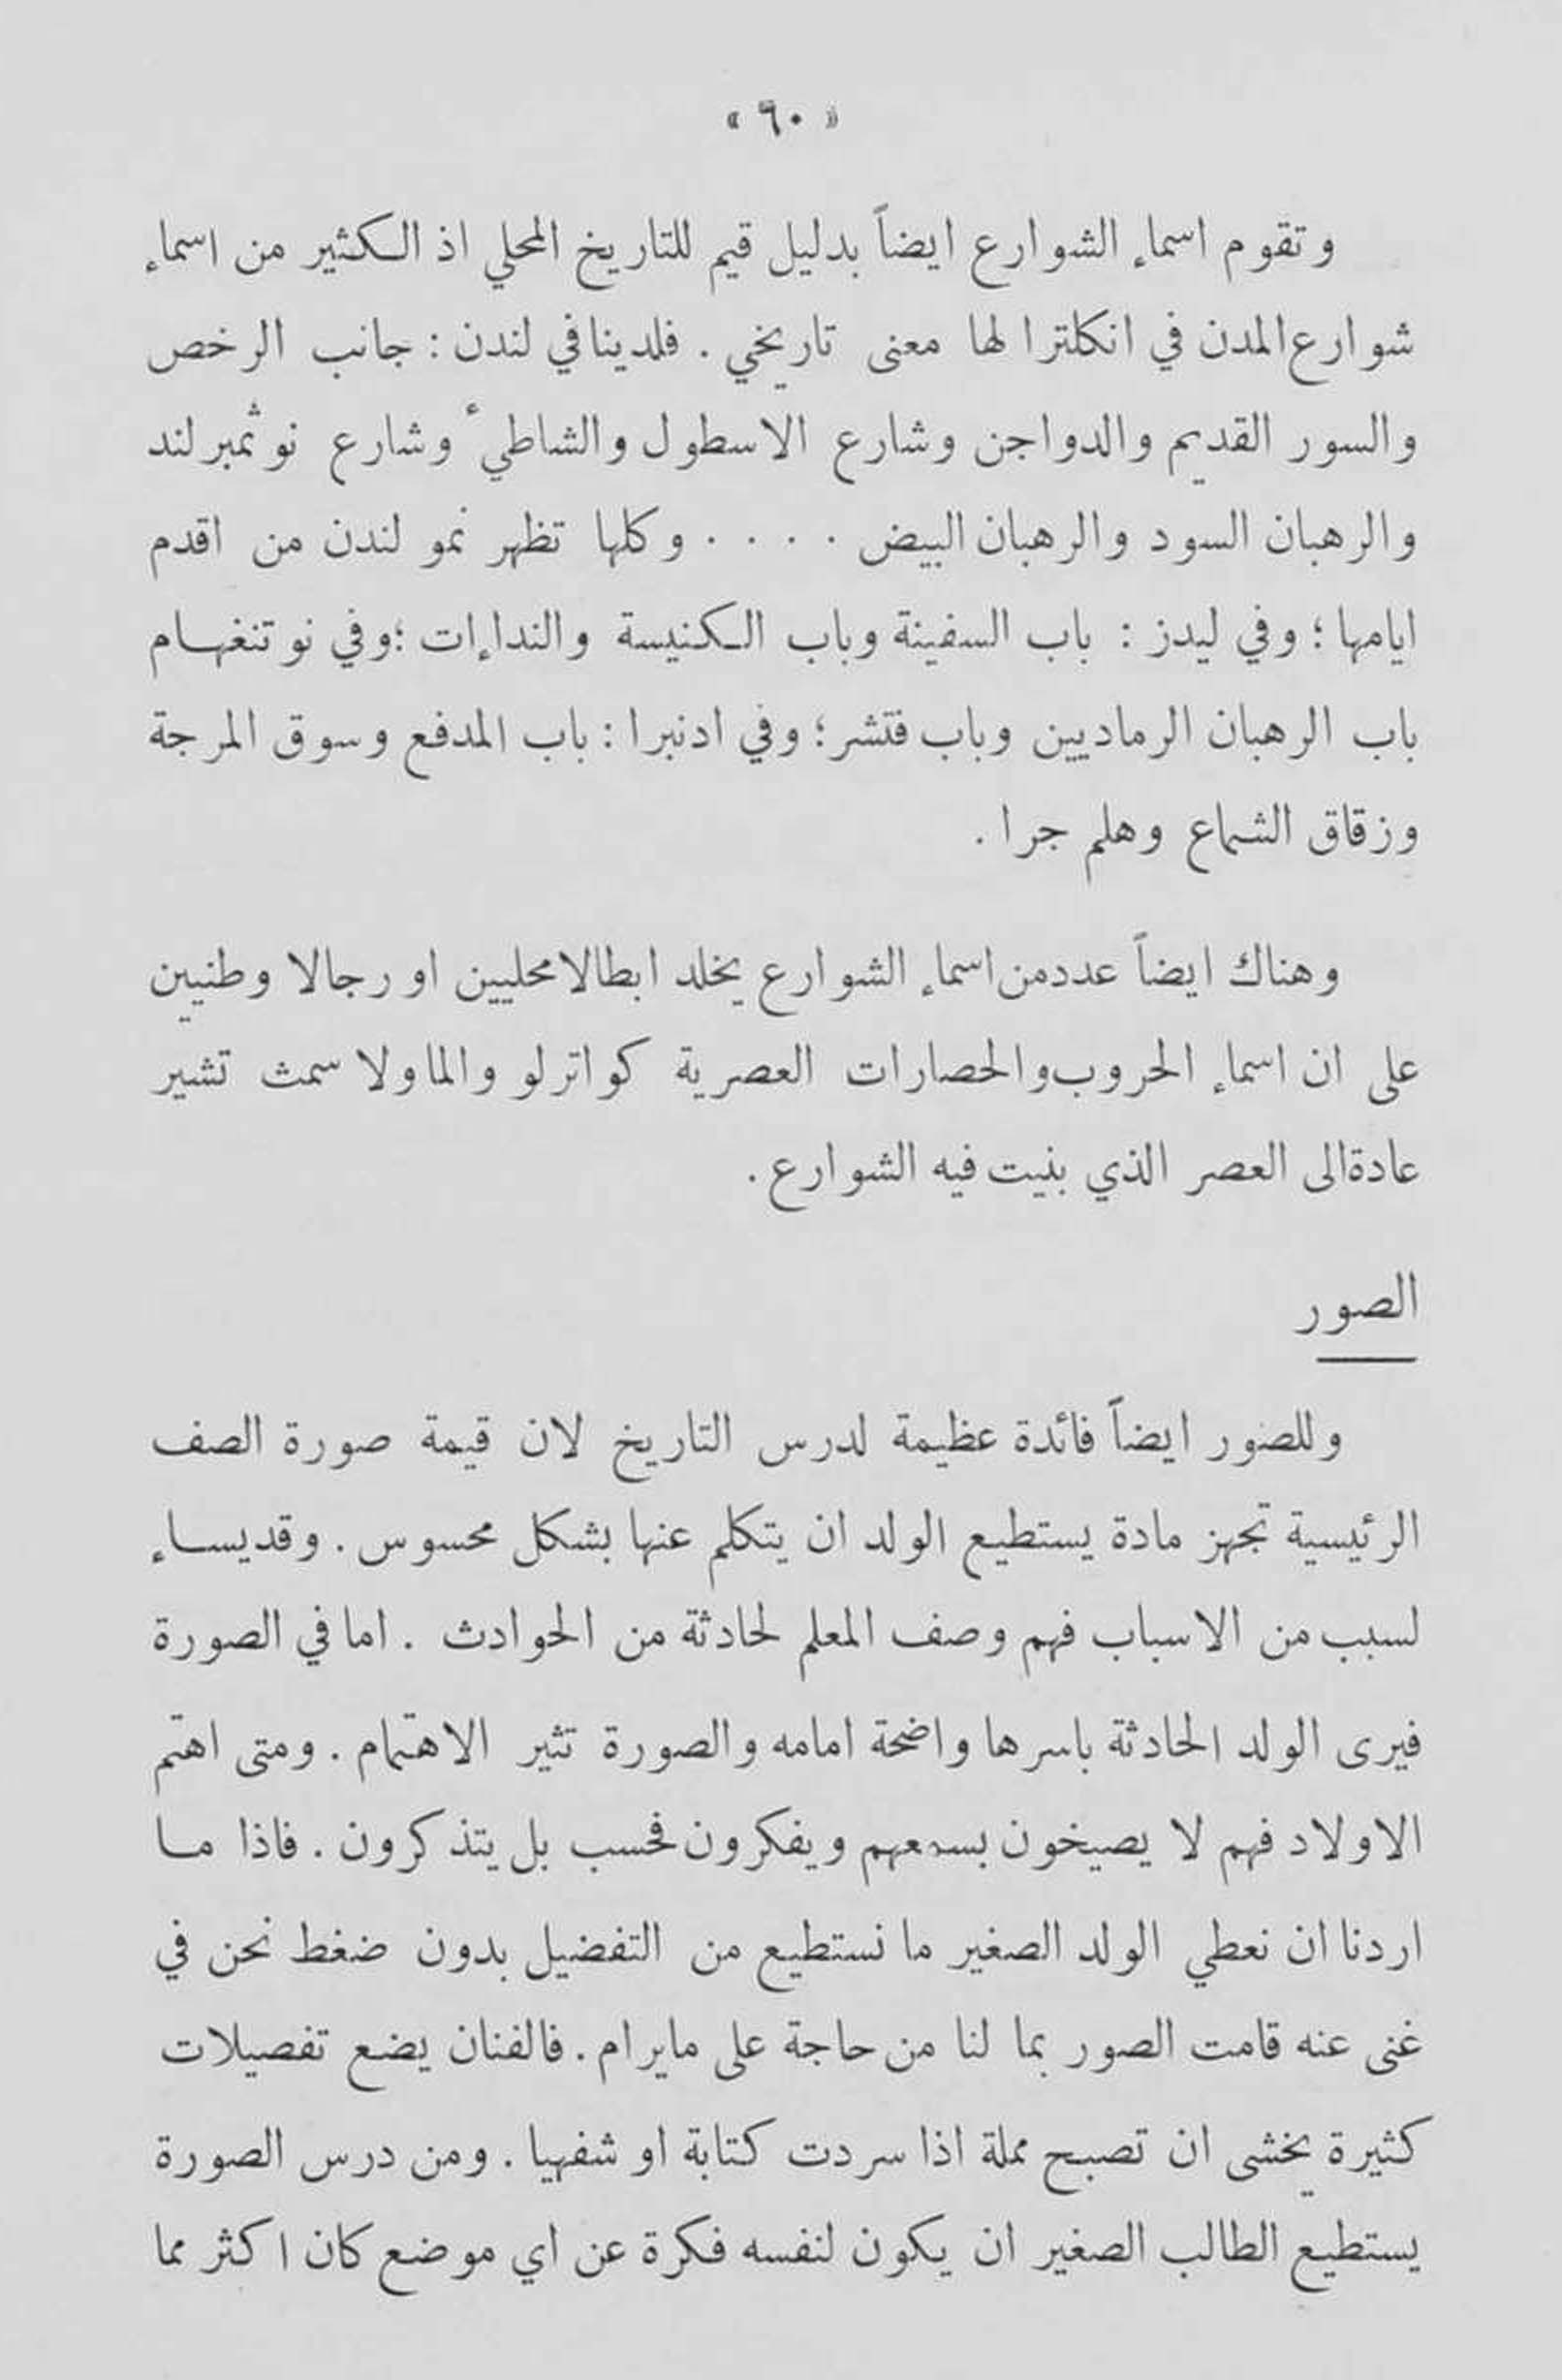 « ٦٠ »
وتقوم اسماء الشوارع ايضاً بدليل قيم للتاريخ المحلي اذ الكثير من اسماء
شوارع المدن في انكلترا لها معنى تاريخي . فلدينا في لندن : جانب الرخص
والسور القديم والدواجن وشارع الاسطول والشاطيء وشارع نوثمبرلند
والرهبان السود والرهبان البيض . . . . وكلها تظهر نمو لندن من اقدم
ايامها ؛ وفي ليدز : باب السفينة وباب الكنيسة والنداءات ؛ وفي نوتنغهام
باب الرهبان الرماديين وباب فتشر ؛ وفي ادنبرا : باب المدفع وسوق المرجة
وزقاق الشماع وهلم جرا .
وهناك ايضاً عدد من اسماء الشوارع يخلد ابطالا محليين او رجالا وطنيين
على ان اسماء الحروب والحصارات العصرية كواترلو والما ولا سمث تشير
عادة الى العصر الذي بنيت فيه الشوارع .
الصور
وللصور ايضاً فائدة عظيمة لدرس التاريخ لان قيمة صورة الصف
الرئيسية تجهز مادة يستطيع الولد ان يتكلم عنها بشكل محسوس . وقد يساء
لسبب من الاسباب فهم وصف المعلم لحادثة من الحوادث . اما في الصورة
فيرى الولد الحادثة باسرها واضحة امامه والصورة تثير الاهتمام . ومتى اهتم
الاولاد فهم لا يصيخون بسمعهم ويفكرون فحسب بل يتذكرون . فاذا ما
اردنا ان نعطي الولد الصغير ما نستطيع من التفضيل بدون ضغط نحن في
غنى عنه قامت الصور بما لنا من حاجة على ما يرام . فالفنان يضع تفصيلات
كثيرة يخشى ان تصبح مملة اذا سردت كتابة او شفهيا . ومن درس الصورة
يستطيع الطالب الصغير ان يكون لنفسه فكرة عن اي موضع كان اكثر مما